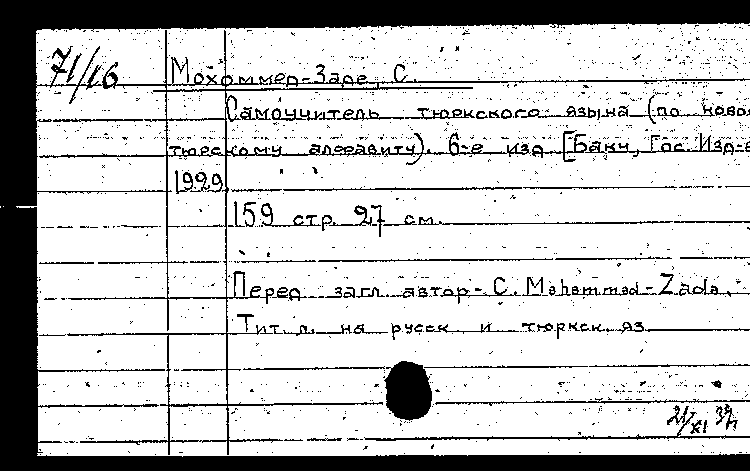 71/16
Мохаммед-Заде, С.
Самоучитель тюркского языка (по ново-
тюрскому алфавиту). 6-е изд [Баку, Гос. Изд-
1929
159 стр. 27 см.
Перед загл. автор - С. Mahammad-Zada.
Тит. л. на русск. и тюркск. яз.
21/XI